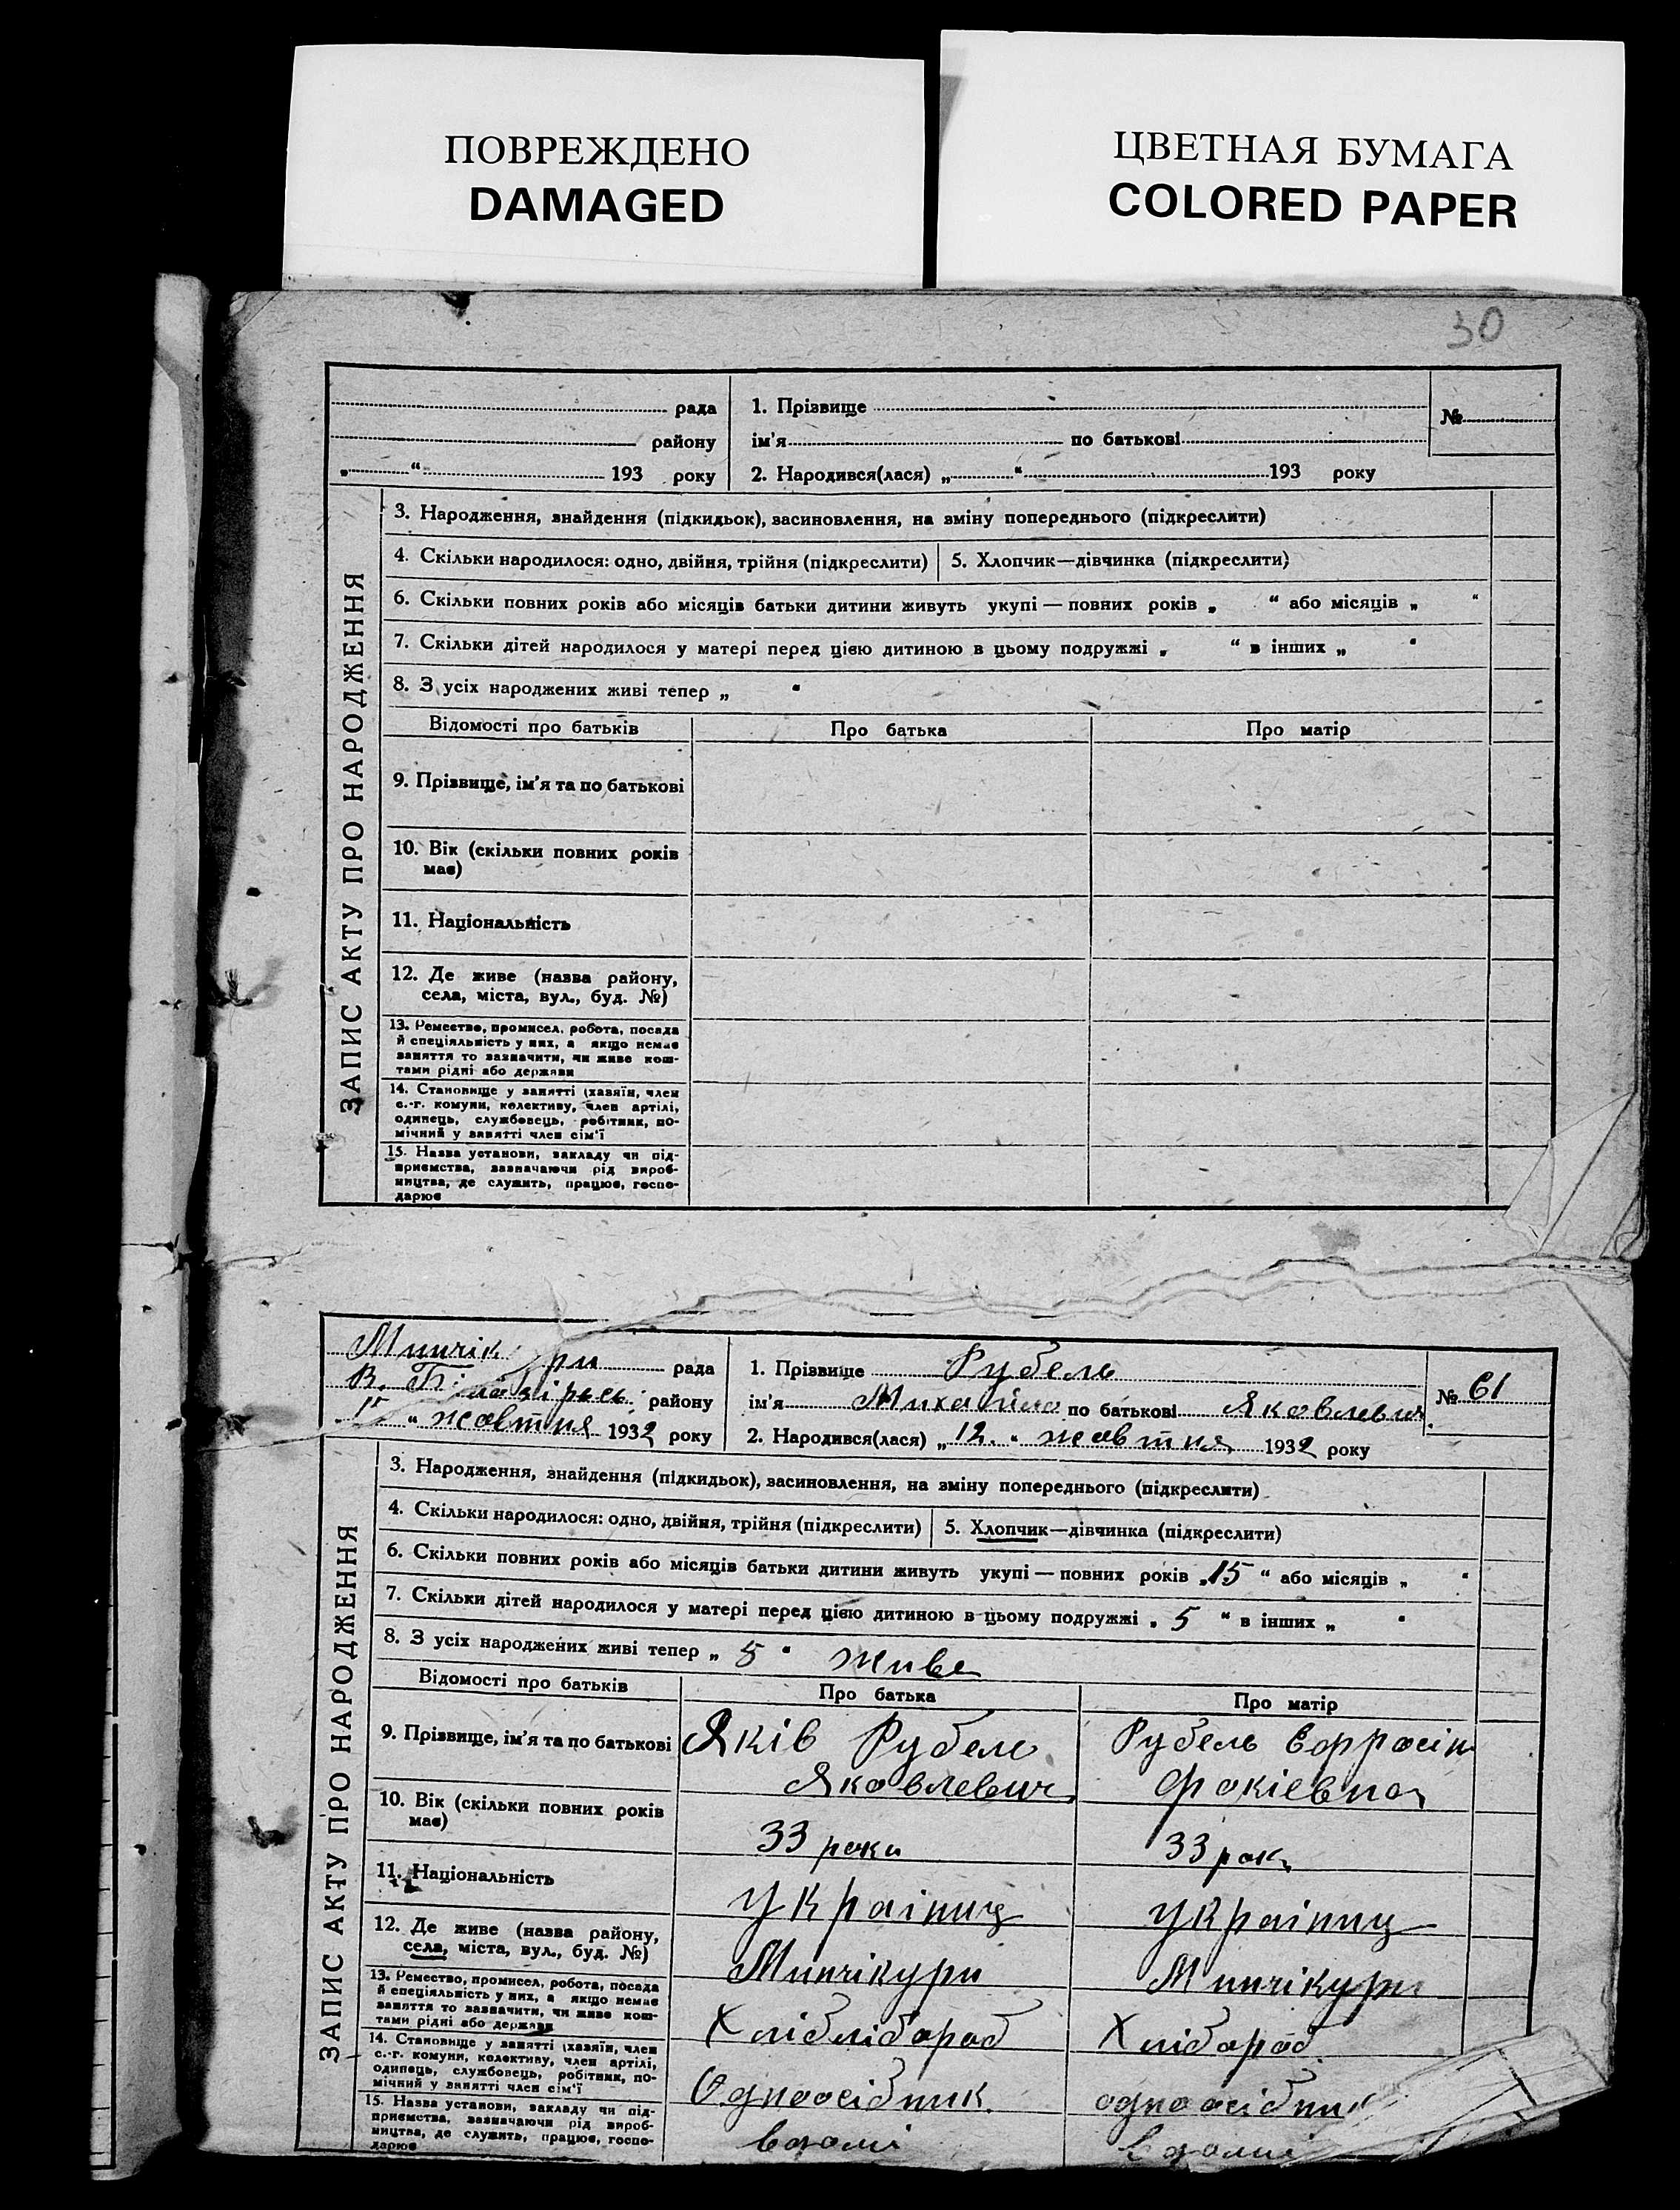 ПОВРЕЖДЕНО
DAMAGED
ЦВЕТНАЯ БУМАГА
COLORED PAPER
30
рада
району
„ “ 193 року
1. Прізвище
ім'я по батькові
2. Народився(лася) „ “ 193 року
№
ЗАПИС АКТУ ПРО НАРОДЖЕННЯ
3. Народження, знайдення (підкидьок), засиновлення, на зміну попереднього (підкреслити)
4. Скільки народилося: одно, двійня, трійня (підкреслити)
5. Хлопчик—дівчинка (підкреслити)
6. Скільки повних років або місяців батьки дитини живуть укупі — повних років „ “ або місяців „ “
7. Скільки дітей народилося у матері перед цією дитиною в цьому подружжі „ “ в інших „ “
8. З усіх народжених живі тепер „ “
Відомості про батьків
Про батька
Про матір
9. Прізвище, ім'я та по батькові
10. Вік (скільки повних років
має)
11. Національність
12. Де живе (назва району,
села, міста, вул., буд. №)
13. Ремество, промисел, робота, посада
й спеціяльність у них, а якщо немає
заняття то зазначити, чи живе кош-
тами рідні або держави
14. Становище у занятті (хазяїн, член
с.-г. комуни, колективу, член артілі,
одинець, службовець, робітник, по-
мічний у занятті член сім'ї
15. Назва установи, закладу чи під-
приємства, зазначаючи рід вироб-
ництва, де служить, працює, госпо-
дарює
рада
В. району
15 “ жовтня 1932 року
1. Прізвище Рубель
ім'я Михайло по батькові Яковлевич.
2. Народився(лася) „12. “ жовтня 1932 року
№ 61
ЗАПИС АКТУ ПРО НАРОДЖЕННЯ
3. Народження, знайдення (підкидьок), засиновлення, на зміну попереднього (підкреслити)
4. Скільки народилося: одно, двійня, трійня (підкреслити)
5. Хлопчик—дівчинка (підкреслити)
6. Скільки повних років або місяців батьки дитини живуть укупі — повних років „15 “ або місяців „ “
7. Скільки дітей народилося у матері перед цією дитиною в цьому подружжі „ 5 “ в інших „ “
8. З усіх народжених живі тепер „ 5 “ живе
Відомості про батьків
Про батька
Про матір
9. Прізвище, ім'я та по батькові
Яків Рубель
Яковлевич
Рубель Єфросін
Фокієвна
10. Вік (скільки повних років
має)
33 роки
33 роки
11. Національність
Україниц
Україниц
12. Де живе (назва району,
села, міста, вул., буд. №)
Минчікури
Минчікури
13. Ремество, промисел, робота, посада
й спеціяльність у них, а якщо немає
заняття то зазначити, чи живе кош-
тами рідні або держави
Хліблібороб
Хлібороб
14. Становище у занятті (хазяїн, член
с.-г. комуни, колективу, член артілі,
одинець, службовець, робітник, по-
мічний у занятті член сім'ї
Одноосібник
одноосібник
15. Назва установи, закладу чи під-
приємства, зазначаючи рід вироб-
ництва, де служить, працює, госпо-
дарює
вдомі
вдомі